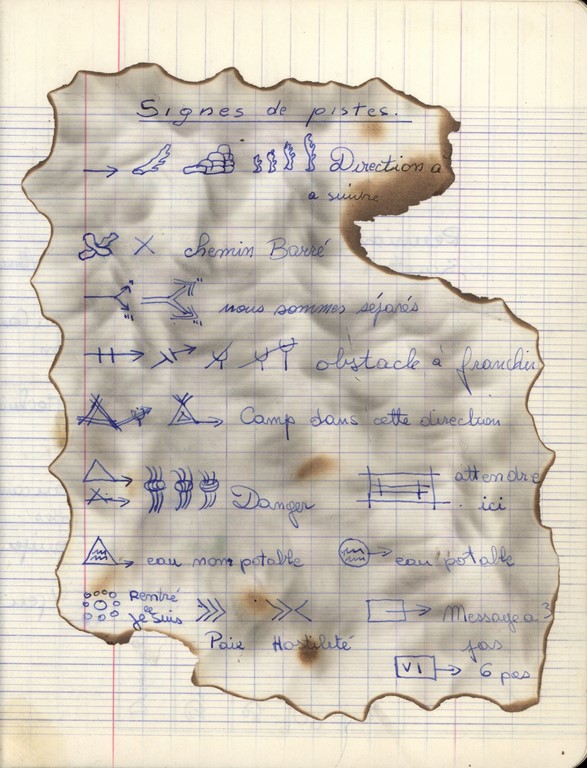 Signes de pistes.
Direction à
a suivre
chemin Barré
nous sommes séparés
obstacle à franchir
Camp dans cette direction
attendre
Danger
ici
eau non potable
eau potable
Rentré
je suis
Message a 3
Paix Hostilité
pas
VI
6 pas